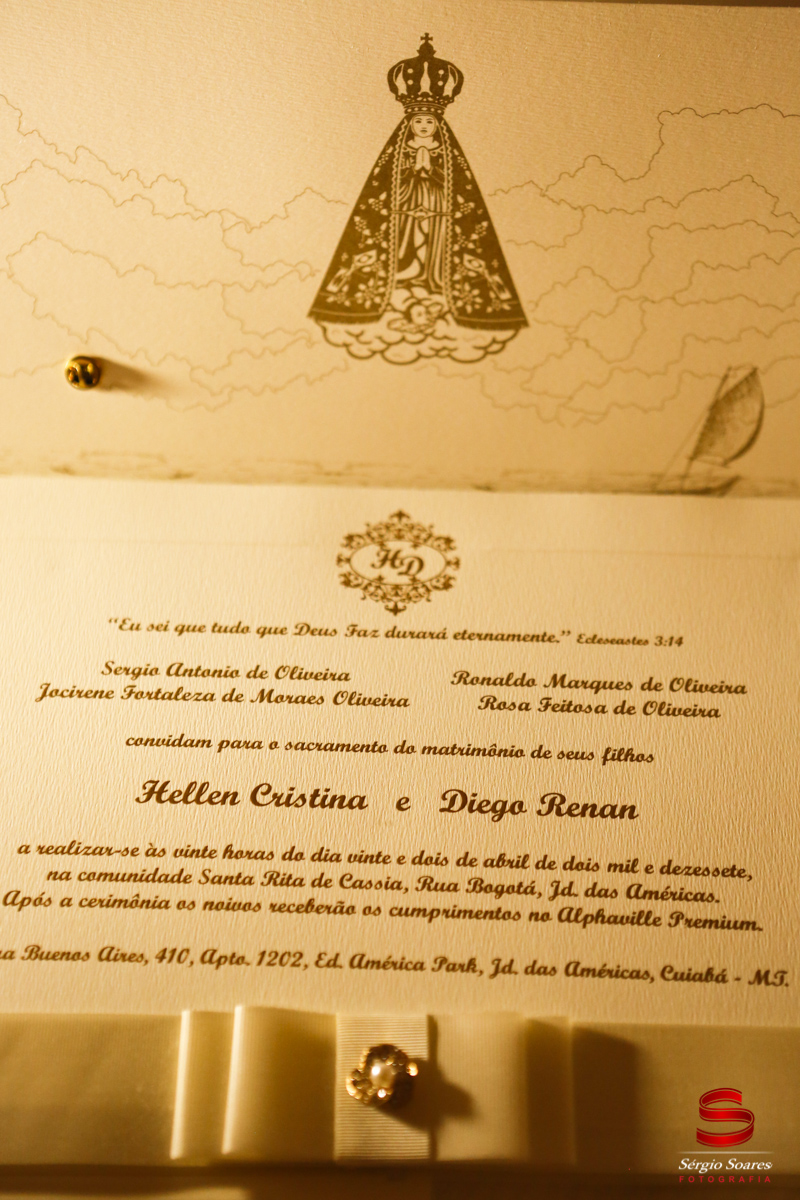 HD
“Eu sei que tudo que Deus Faz durará eternamente.” Ecleseastes 3:14
Sergio Antonio de Oliveira
Jocirene Fortaleza de Moraes Oliveira
Ronaldo Marques de Oliveira
Rosa Feitosa de Oliveira
convidam para o sacramento do matrimônio de seus filhos
Hellen Cristina e Diego Renan
a realizar-se às vinte horas do dia vinte e dois de abril de dois mil e dezessete,
na comunidade Santa Rita de Cassia, Rua Bogotá, Jd. das Américas.
Após a cerimônia os noivos receberão os cumprimentos no Alphaville Premium.
Buenos Aires, 410, Apto. 1202, Ed. América Park, Jd. das Américas, Cuiabá - MT.
S
Sérgio Soares
FOTOGRAFIA